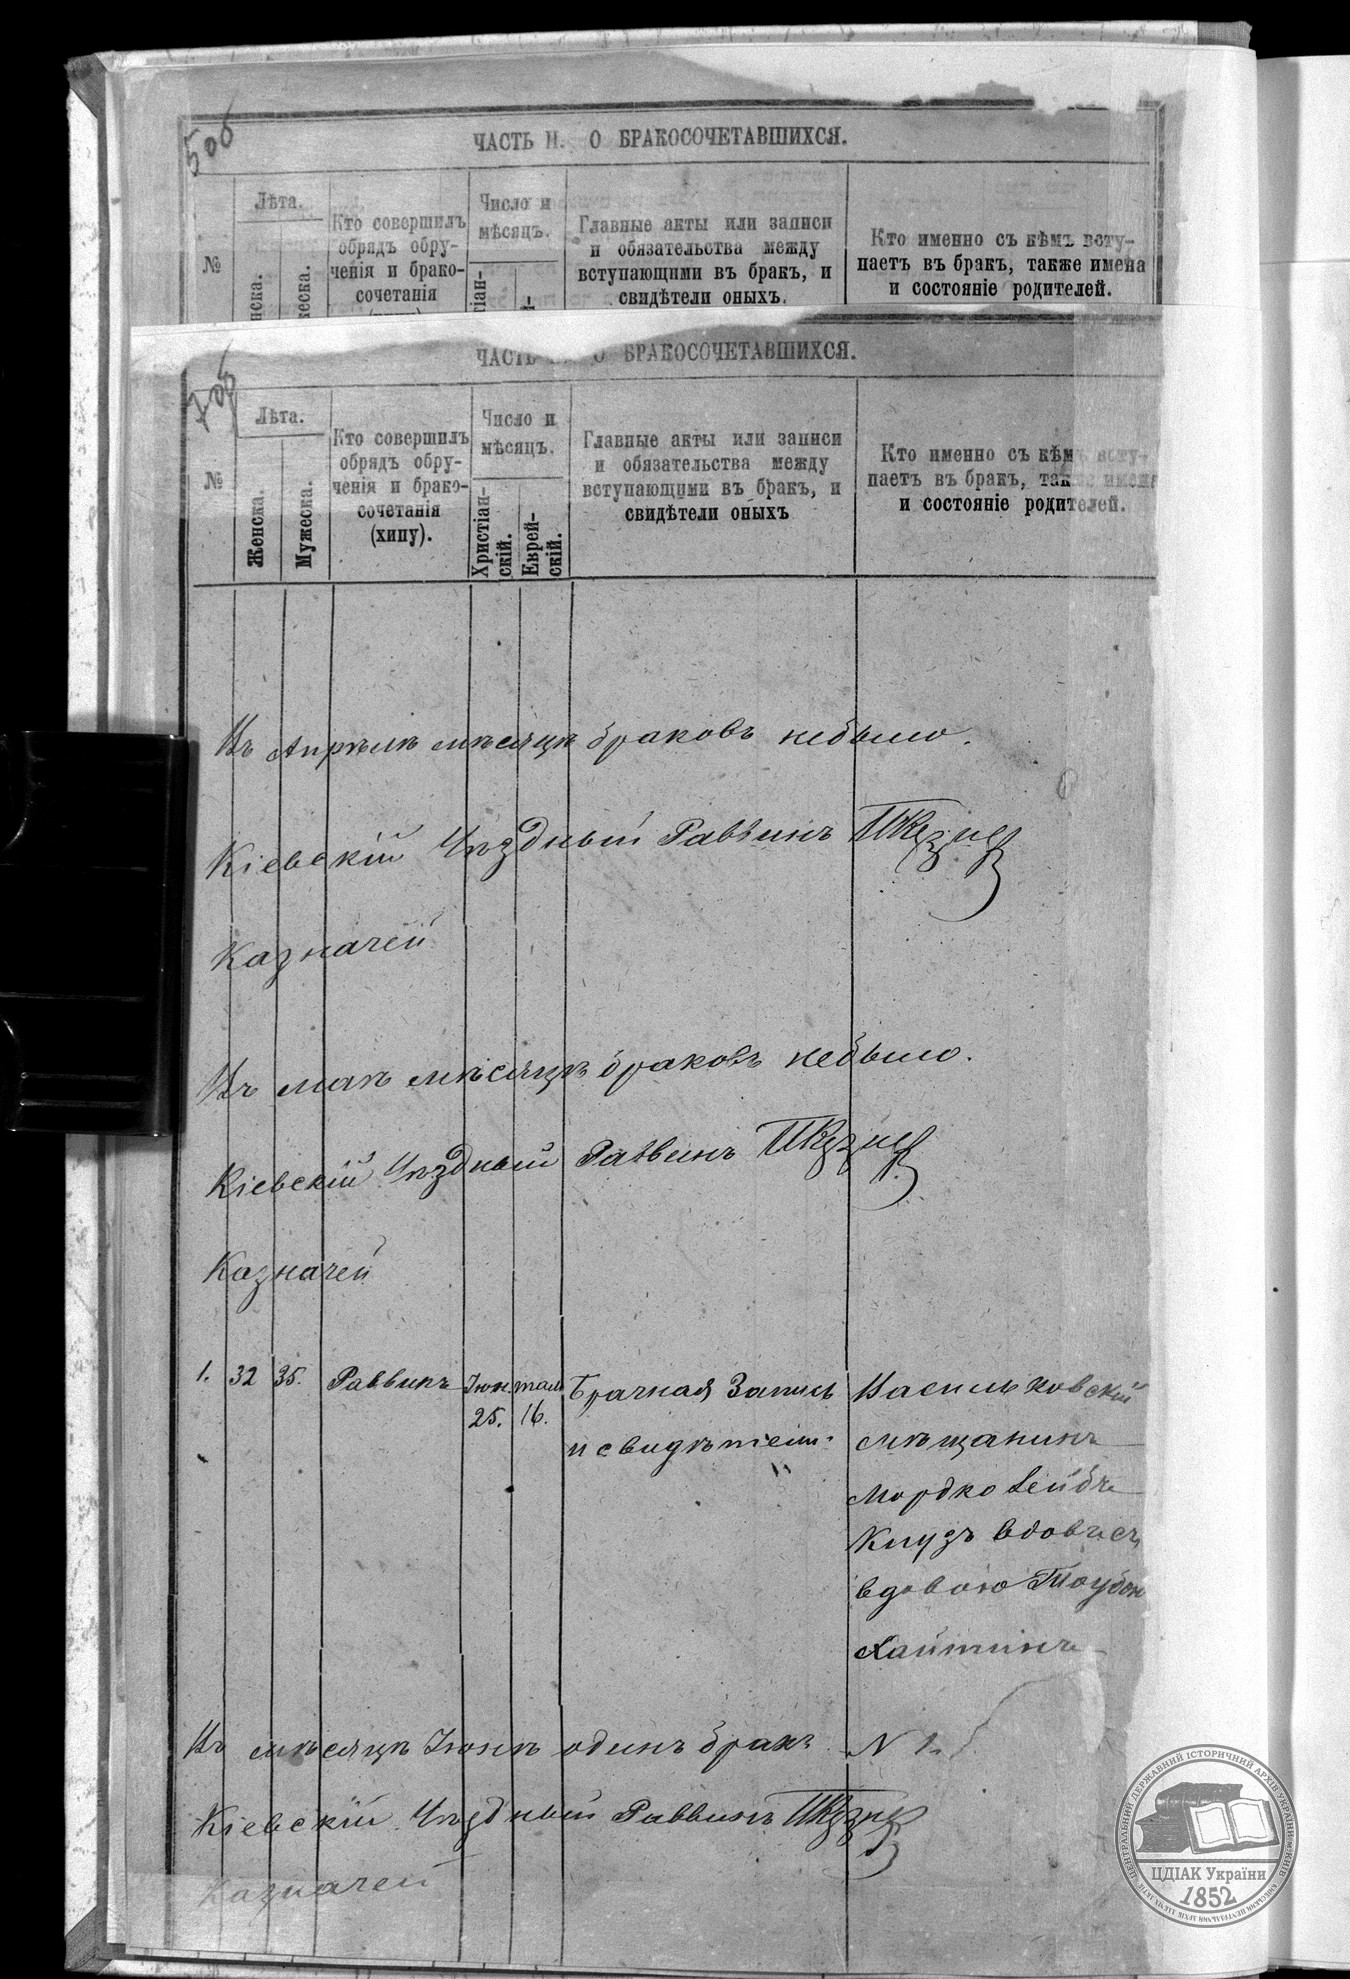 506
ЧАСТЬ II. О БРАКОСОЧЕТАВШИХСЯ.
№
Лѣта.
нска.
жеска.
Кто совершилъ
обрядъ обру-
ченія и брако-
сочетанія
Число и
мѣсяцъ.
тіан-
Главные акты или записи
и обязательства между
вступающими въ бракъ, и
свидѣтели оныхъ.
Кто именно съ кѣмъ всту-
паетъ въ бракъ, также имена
и состояніе родителей.
706
ЧАСТЬ О БРАКОСОЧЕТАВШИХСЯ.
№
Лѣта.
Женска.
Мужеска.
Кто совершилъ
обрядъ обру-
ченія и брако-
сочетанія
(хипу).
Число и
мѣсяцъ.
Христіан-
скій.
Еврей-
скій.
Главные акты или записи
и обязательства между
вступающими въ бракъ, и
свидѣтели оныхъ
Кто именно съ кѣмъ всту-
паетъ въ бракъ, также имена
и состояніе родителей.
Въ Апрѣлѣ мѣсяцѣ браковъ небыло.
Кіевскій Уѣздный Раввинъ
Казначей
Въ маѣ мѣсяцѣ браковъ небыло.
Кіевскій Уѣздный Раввинъ
Казначей
1. 32 35. Раввинъ Іюн. там. Брачная Запись Васильковскій
25. 16. и свидѣтели. мѣщанинъ
Мордко Лейбъ
Кнудъ вдовецъ
вдовою Таубою
Хайтинъ
Въ мѣсяцѣ Іюнѣ одинъ бракъ N 1.
Кіевскій Уѣздный Раввинъ
Казначей
ЦЕНТРАЛЬНИЙ ДЕРЖАВНИЙ ІСТОРИЧНИЙ АРХІВ УКРАЇНИ, М.КИЇВ
ЦДІАК України
1852